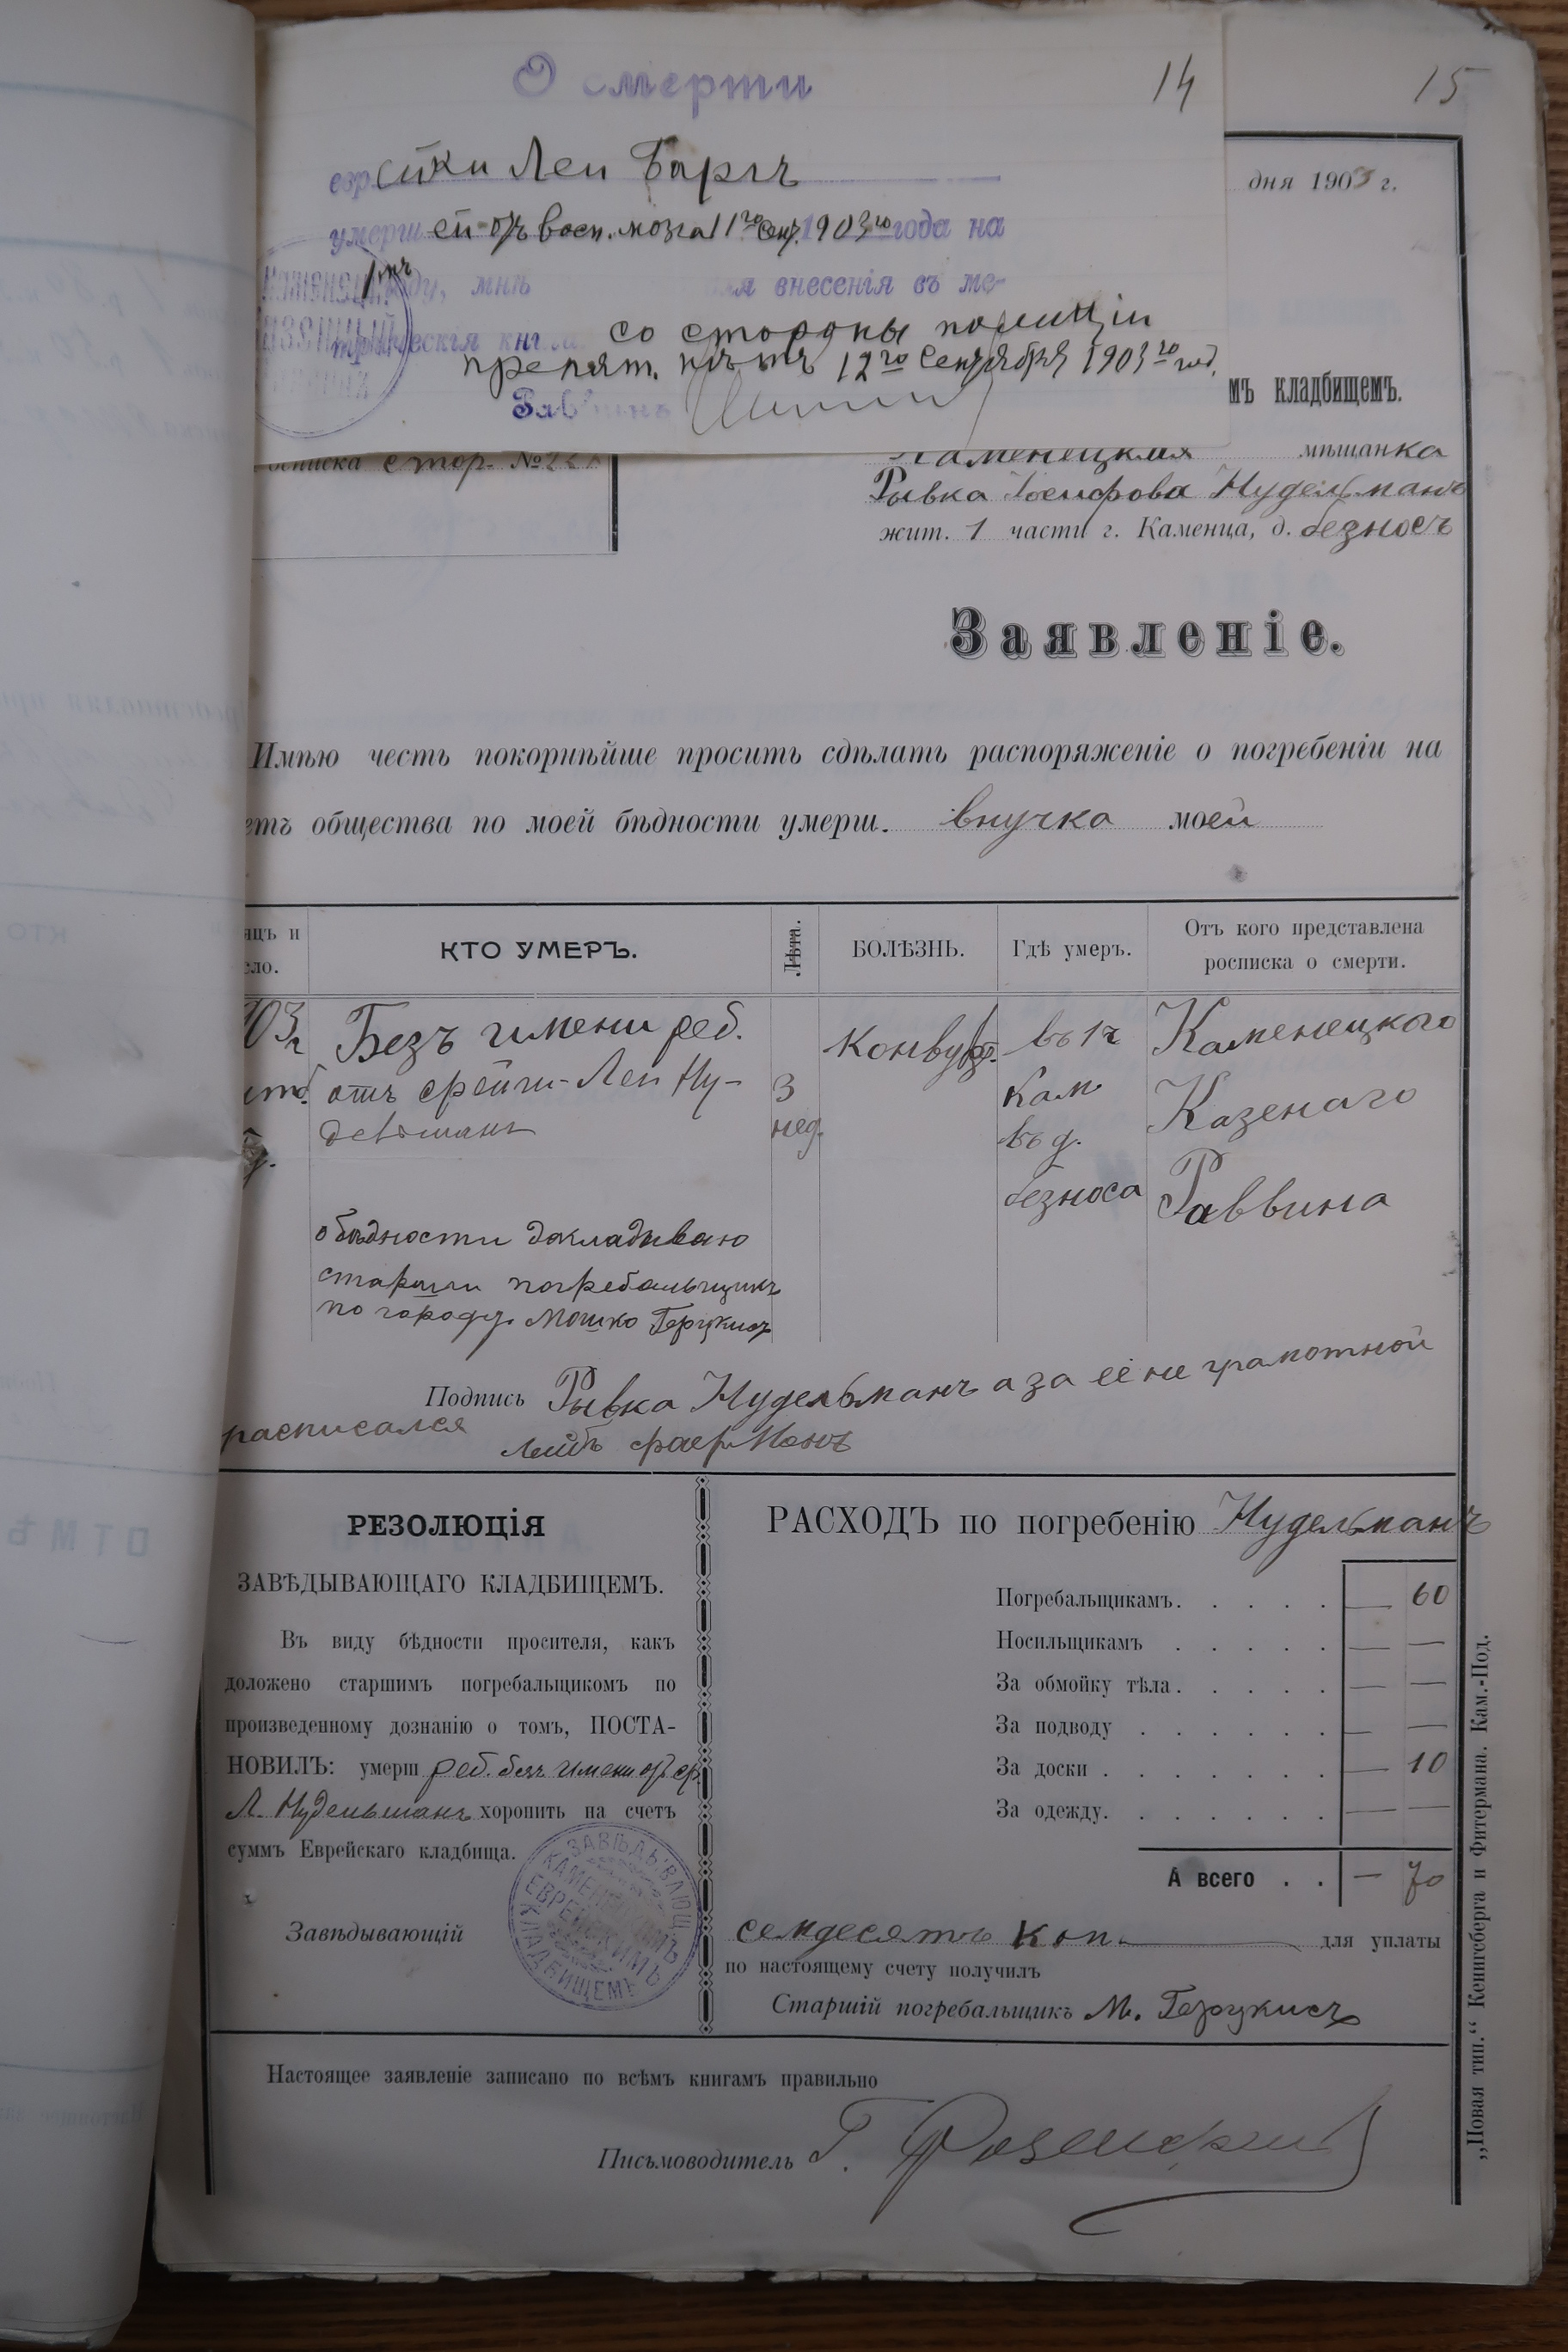 О смерти
14
15
евр ейки Леи Баргъ
умерш ей отъ восп. мозга 11го Сент. 1903го года на
1мъ году, мнѣ для внесенія въ ме-
трическія кни
со стороны полиціи
препят. нѣтъ 12го Сентября 1903го год.
Раввинъ
КАМЕНЕЦКІЙ
КАЗЕННЫЙ
дня 1903 г.
мъ кладбищемъ.
осписка стор. №
Каменецкая мѣщанка
Рывка Іосифова Нудельманъ
жит. 1 части г. Каменца, д. безносъ
Заявленіе.
Имѣю честь покорнѣйше просить сдѣлать распоряженіе о погребеніи на
етъ общества по моей бѣдности умерш. внучка моей
яцъ и
сло.
КТО УМЕРЪ.
Лѣта.
БОЛѢЗНЬ.
Гдѣ умеръ.
Отъ кого представлена
росписка о смерти.
903 г
Безъ имени реб.
отъ фейги-Леи Ну-
дельманъ
3
нед.
Конвул.
въ 1 ч
Кам
въ д.
безноса
Каменецкого
Казенаго
Раввина
о бѣдности докладываю
старши погребальщикъ
по городу Мошко Герцкисъ
Подпись Рывка Нудельманъ а за её не грамотной
расписался Лейбъ фаерманъ
РЕЗОЛЮЦІЯ
ЗАВѢДЫВАЮЩАГО КЛАДБИЩЕМЪ.
Въ виду бѣдности просителя, какъ
доложено старшимъ погребальщикомъ по
произведенному дознанію о томъ, ПОСТА-
НОВИЛЪ: умерш реб. безъ имени отъ ф.
Л. Нудельманъ хоронить на счетъ
суммъ Еврейскаго кладбища.
Завѣдывающій
ЗАВѢДЫВАЮЩ.
КАМЕНЕЦКИМЪ
ЕВРЕЙСКИМЪ
КЛАДБИЩЕМЪ
РАСХОДЪ по погребенію Нудельманъ
Погребальщикамъ. . . . . — 60
Носильщикамъ . . . . . — —
За обмойку тѣла. . . . . — —
За подводу . . . . . . — —
За доски . . . . . . . — 10
За одежду. . . . . . . — —
А всего . . — 70
семдесять коп. для уплаты
по настоящему счету получилъ
Старшій погребальщикъ М. Герцкисъ
Настоящее заявленіе записано по всѣмъ книгамъ правильно
Письмоводитель Г.
„Новая тип.“ Кенигсберга и Фитермана. Кам.-Под.